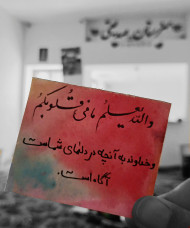 والله یعلم ما فی قلوبکم
وخداوند به آنچه در دلهای شماست
آگاه است.